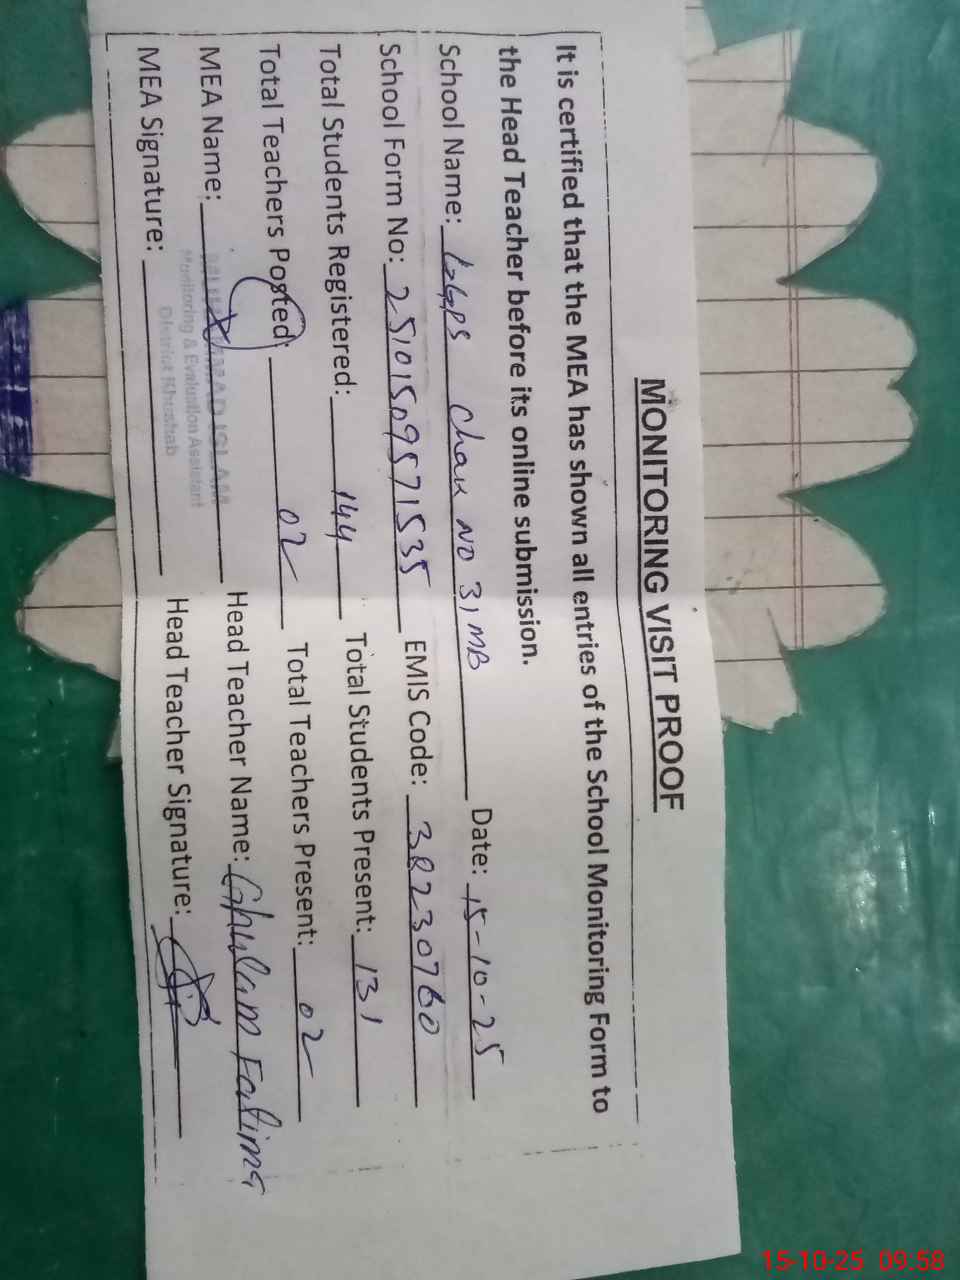 MONITORING VISIT PROOF
It is certified that the MEA has shown all entries of the School Monitoring Form to
the Head Teacher before its online submission.
School Name: GGPS Chak NO 31 MB Date: 15-10-25
School Form No: 25101509571535 EMIS Code: 38230760
Total Students Registered: 144 Total Students Present: 131
Total Teachers Posted: 02 Total Teachers Present: 02
MEA Name: MUHAMMAD ISLAM Head Teacher Name: Ghulam Fatima
Monitoring & Evaluation Assistant
District Khushab
MEA Signature: Head Teacher Signature:
15-10-25 09.58